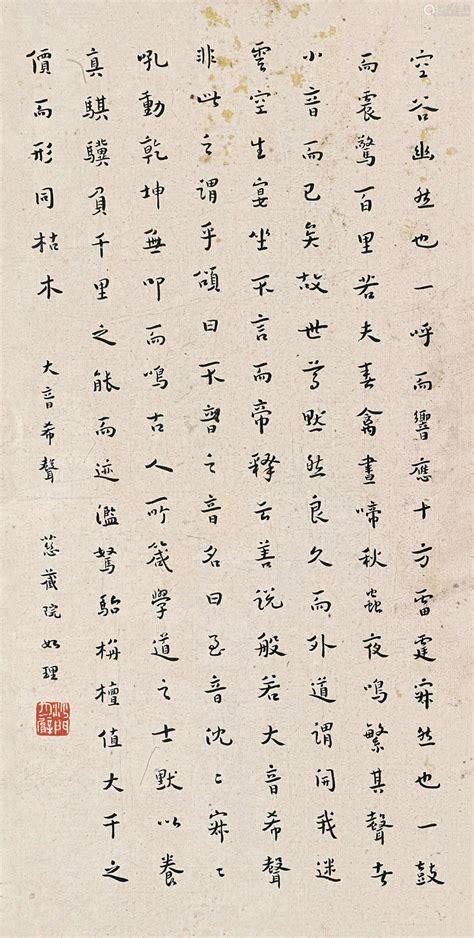 空谷幽然也一呼而響應十方雷霆寂然也一鼓
而震驚百里若夫春禽晝啼秋蟲夜鳴繁其聲者
小音而已矣故世尊默然良久而外道謂開我迷
雲空生宴坐不言而帝釋云善說般若大音希聲
非此之謂乎頌曰不音之音名曰至音沈〻寂〻
吼動乾坤無叩而鳴古人所箴學道之士默以養
真騏驥負千里之能而迹濫駑駘栴檀值大千之
價而形同枯木 大音希聲 慈藏院如理